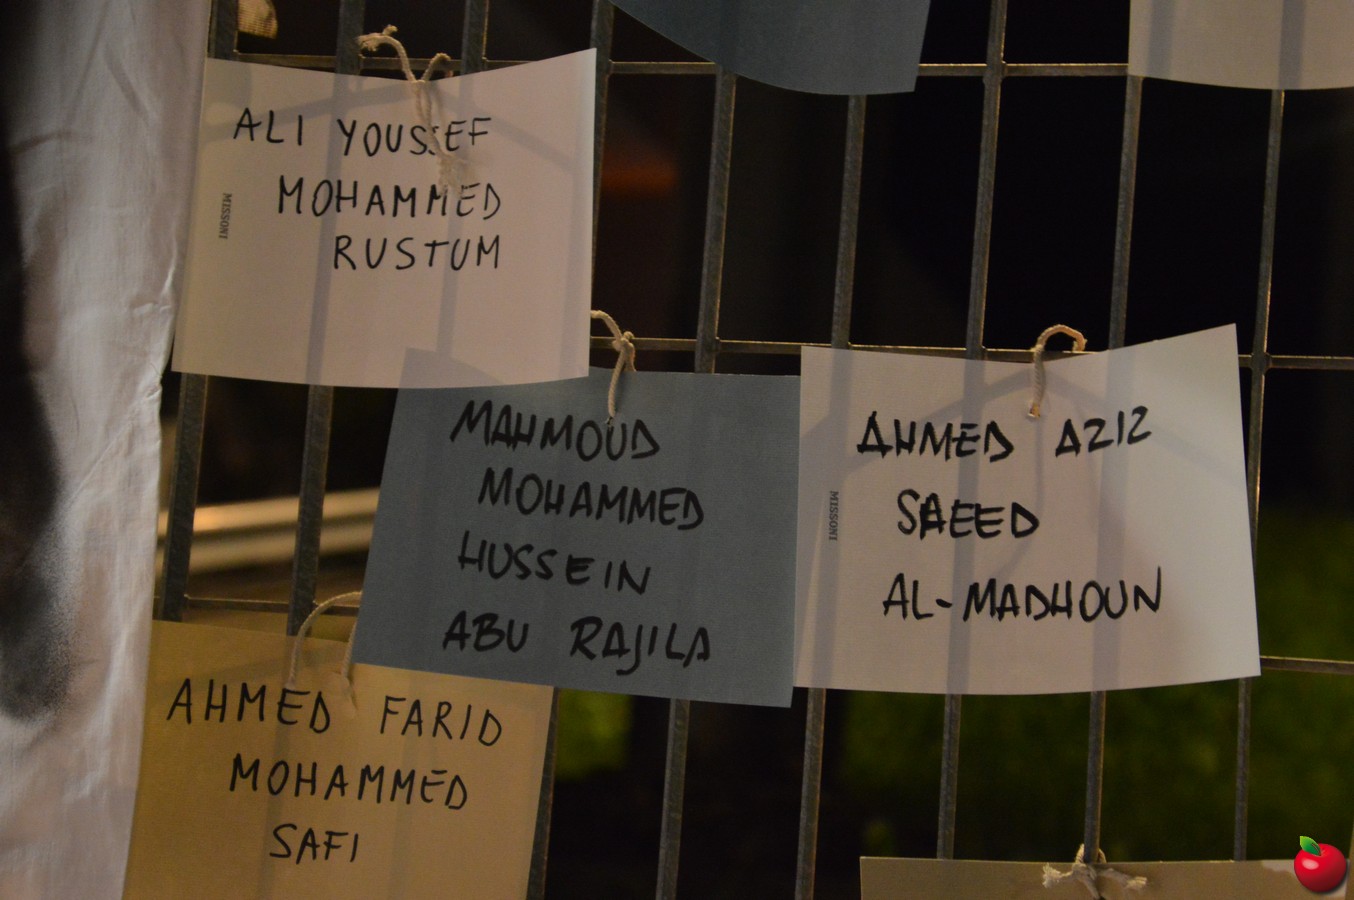 ALI YOUSSEF
MOHAMMED
RUSTUM
MISSONI
MAHMOUD
MOHAMMED
HUSSEIN
ABU RAJILA
AHMED AZIZ
SAEED
AL-MADHOUN
MISSONI
AHMED FARID
MOHAMMED
SAFI